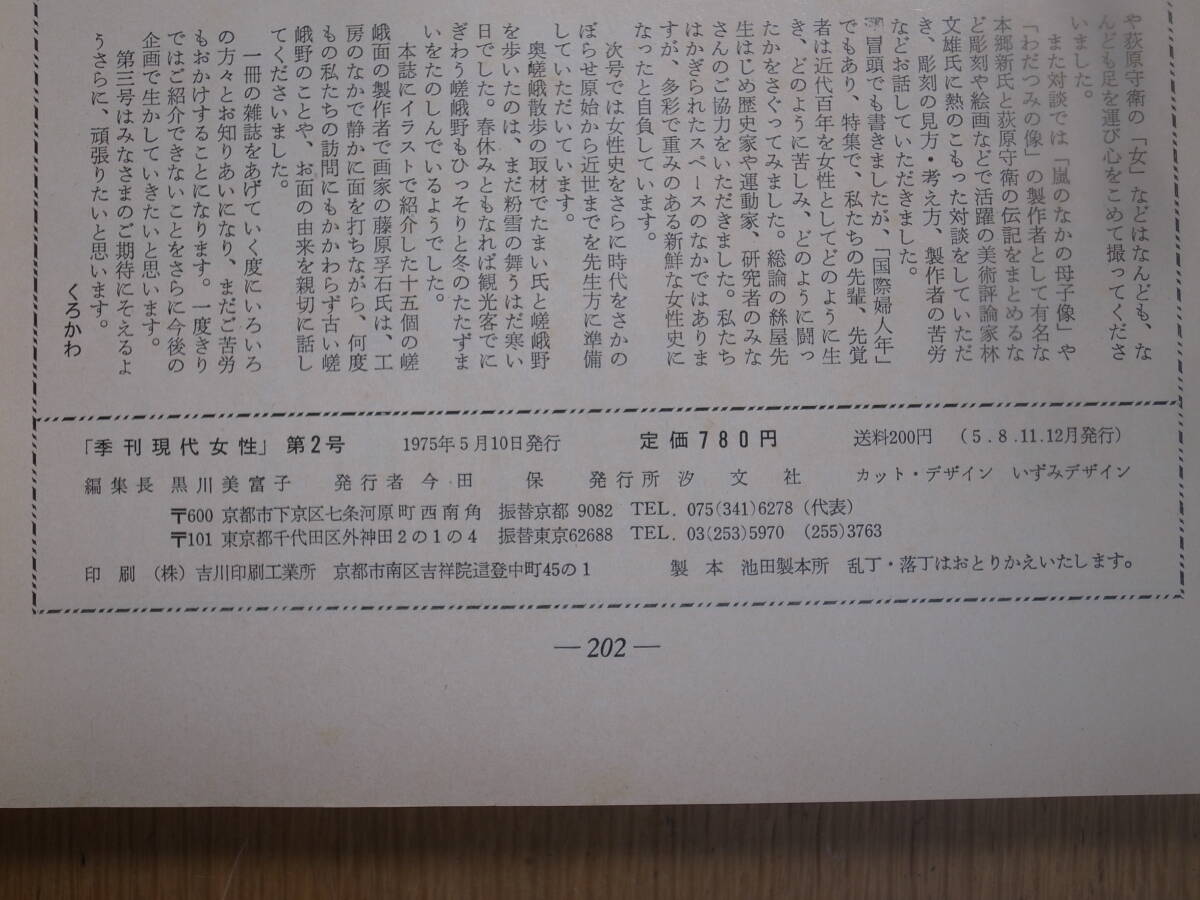 や荻原守衛の「女」などはなんども、な
んども足を運び心をこめて撮ってくださ
いました。
また対談では「嵐のなかの母子像」や
「わだつみの像」の製作者として有名な
本郷新氏と荻原守衛の伝記をまとめるな
ど彫刻や絵画などで活躍の美術評論家林
文雄氏に熱のこもった対談をしていただ
き、彫刻の見方・考え方、製作者の苦労
などお話していただきました。
冒頭でも書きましたが、「国際婦人年」
でもあり、特集で、私たちの先輩、先覚
者は近代百年を女性としてどのように生
き、どのように苦しみ、どのように闘っ
たかをさぐってみました。総論の絲屋先
生はじめ歴史家や運動家、研究者のみな
さんのご協力をいただきました。私たち
はかぎられたスペースのなかではありま
すが、多彩で重みのある新鮮な女性史に
なったと自負しています。
次号では女性史をさらに時代をさかの
ぼらせ原始から近世までを先生方に準備
していただいています。
奥嵯峨散歩の取材でたまい氏と嵯峨野
を歩いたのは、まだ粉雪の舞うはだ寒い
日でした。春休みともなれば観光客でに
ぎわう嵯峨野もひっそりと冬のたたずま
いをたのしんでいるようでした。
本誌にイラストで紹介した十五個の嵯
峨面の製作者で画家の藤原孚石氏は、工
房のなかで静かに面を打ちながら、何度
もの私たちの訪問にもかかわらず古い嵯
峨野のことや、お面の由来を親切に話し
てくださいました。
一冊の雑誌をあげていく度にいろいろ
の方々とお知りあいになり、まだご苦労
もおかけすることになります。一度きり
ではご紹介できないことをさらに今後の
企画で生かしていきたいと思います。
第三号はみなさまのご期待にそえるよ
うさらに、頑張りたいと思います。
くろかわ
「季刊現代女性」第2号 1975年5月10日発行 定価780円 送料200円 (5.8.11.12月発行)
編集長 黒川美富子 発行者 今田 保 発行所 汐文社 カット・デザイン いずみデザイン
〒600 京都市下京区七条河原町西南角 振替京都 9082 TEL. 075(341)6278(代表)
〒101 東京都千代田区外神田2の1の4 振替東京62688 TEL. 03(253)5970 (255)3763
印刷 (株)吉川印刷工業所 京都市南区吉祥院這登中町45の1 製本 池田製本所 乱丁・落丁はおとりかえいたします。
—202—